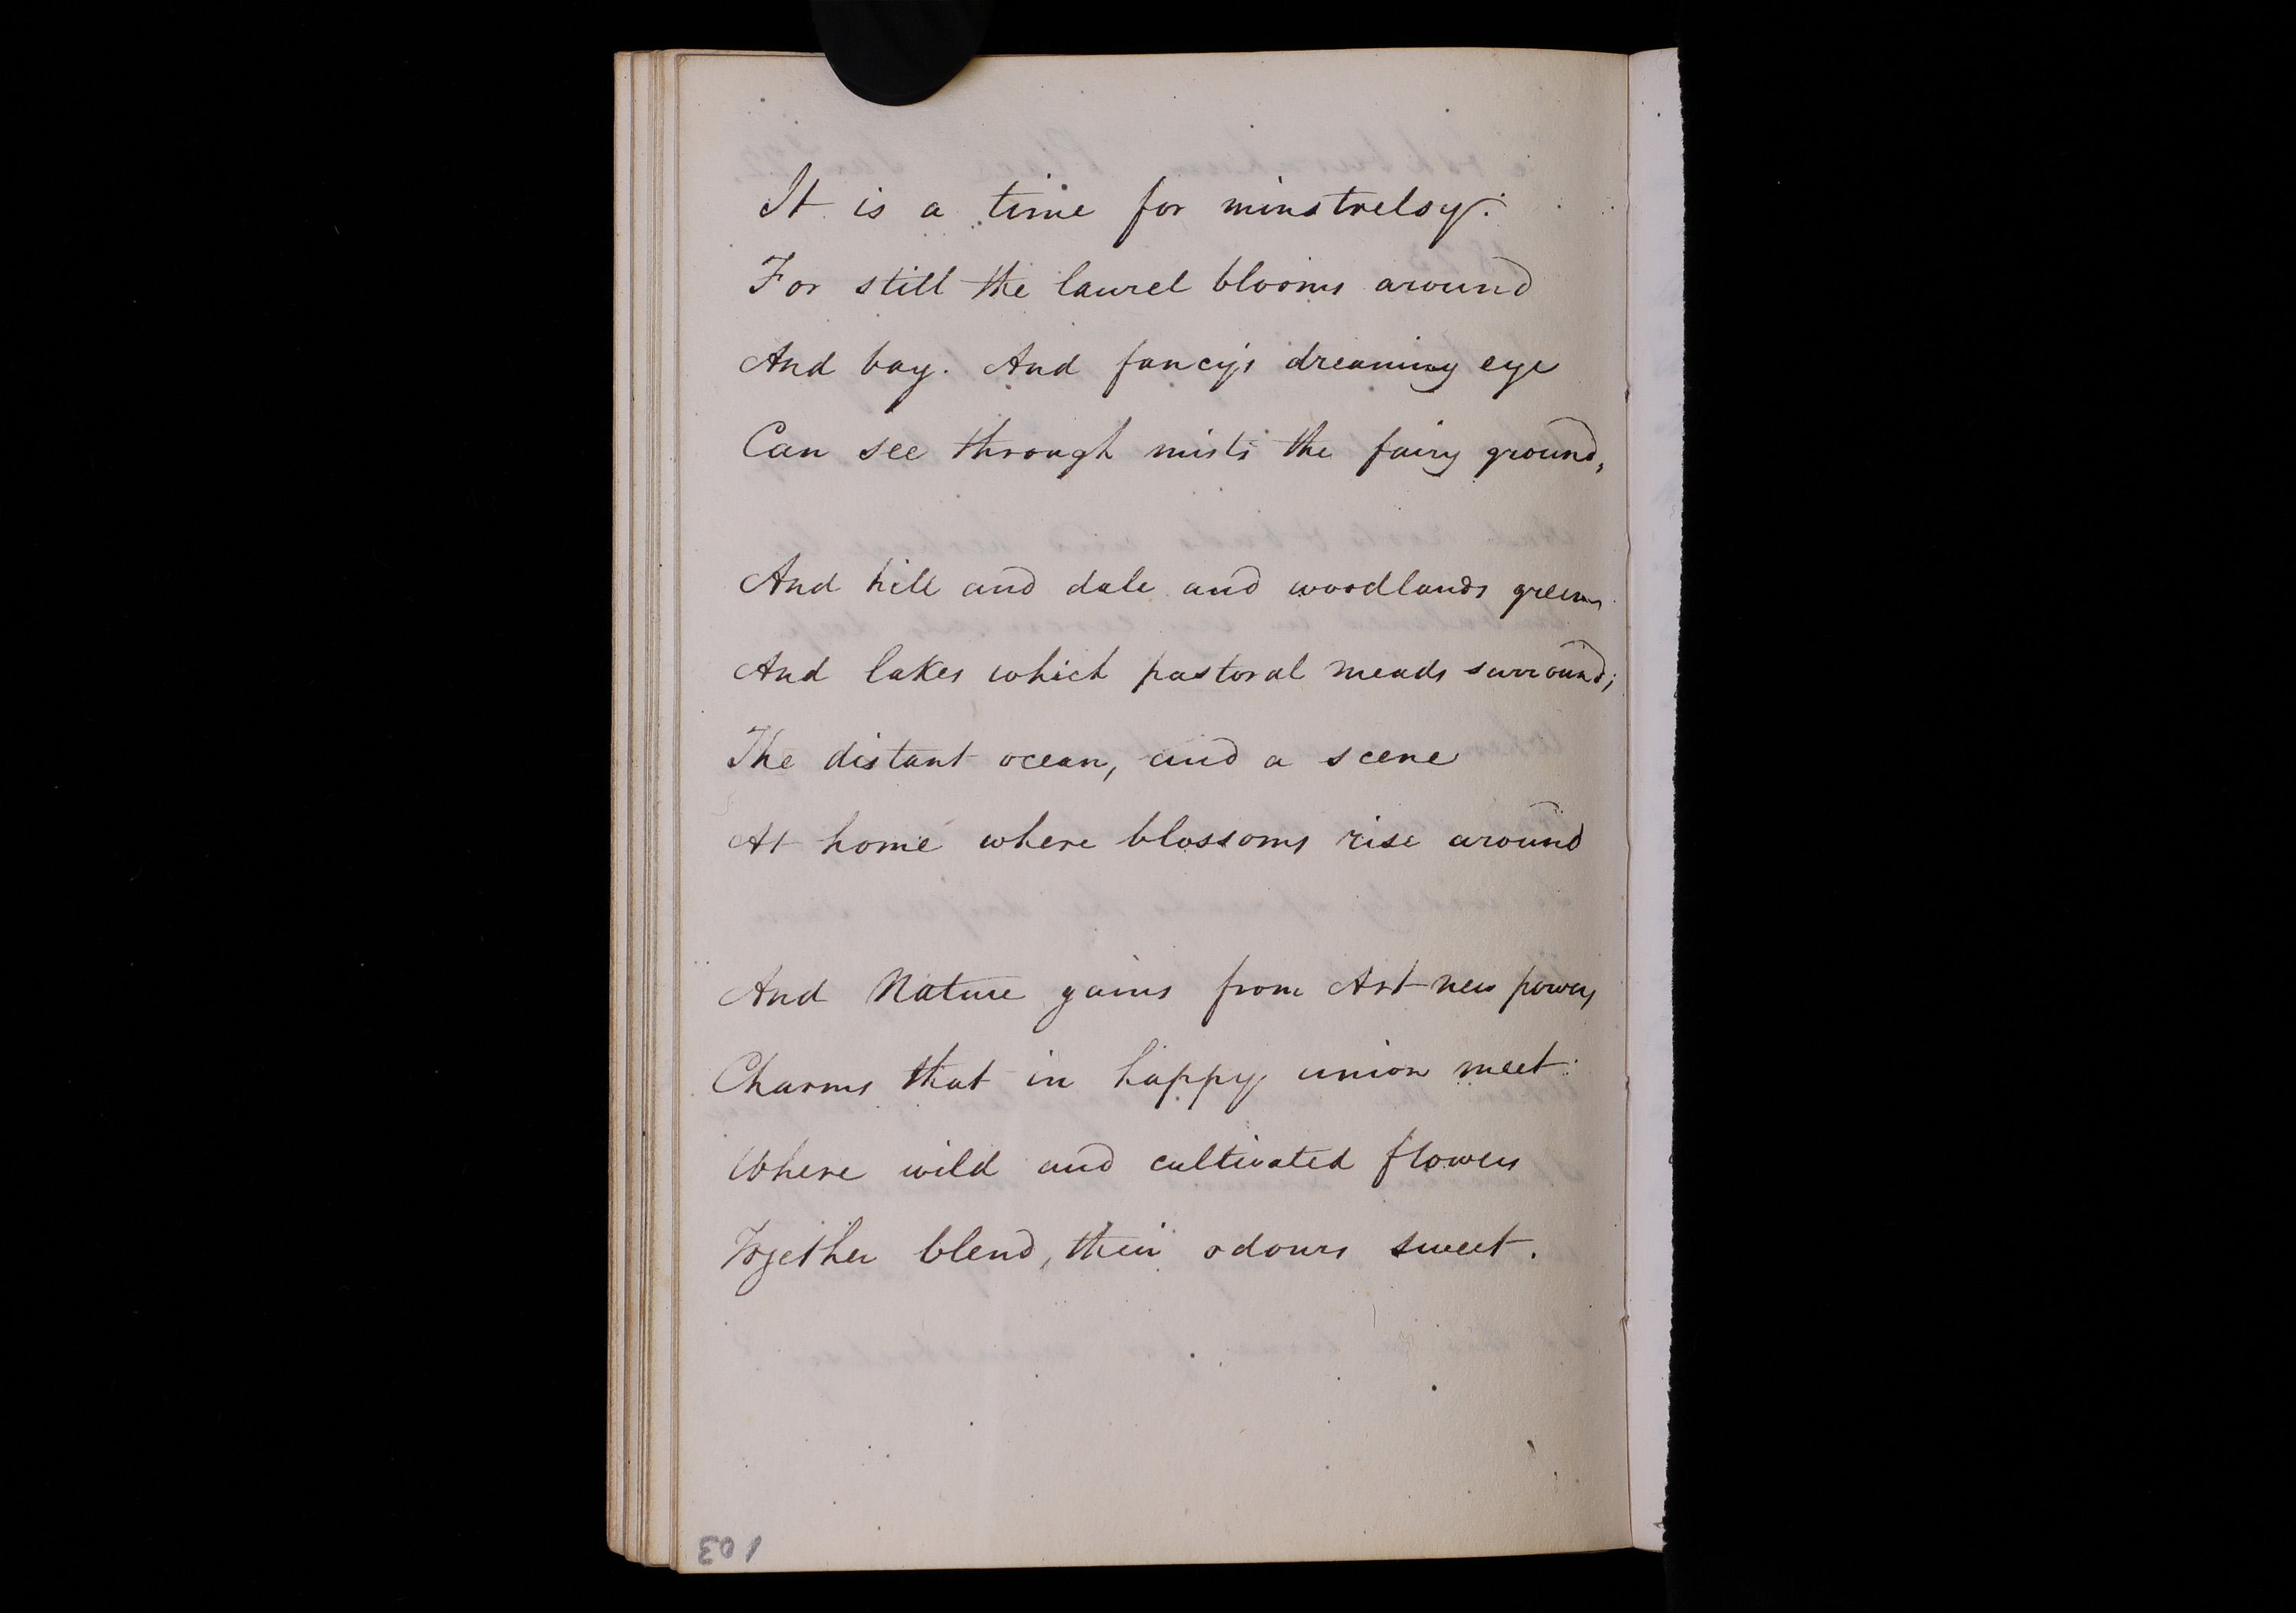 It is a time for minstrelsy.
For still the laurel blooms around
And bay. And fancy's dreaming eye
Can see through mists the fairy ground,
And hill and dale and woodlands green
And lakes which pastoral meads surround;
The distant ocean, and a scene
At home where blossoms rise around
And Nature gains from Art new powers
Charms that in happy union meet.
Where wild and cultivated flowers
Together blend, their odours sweet.
103